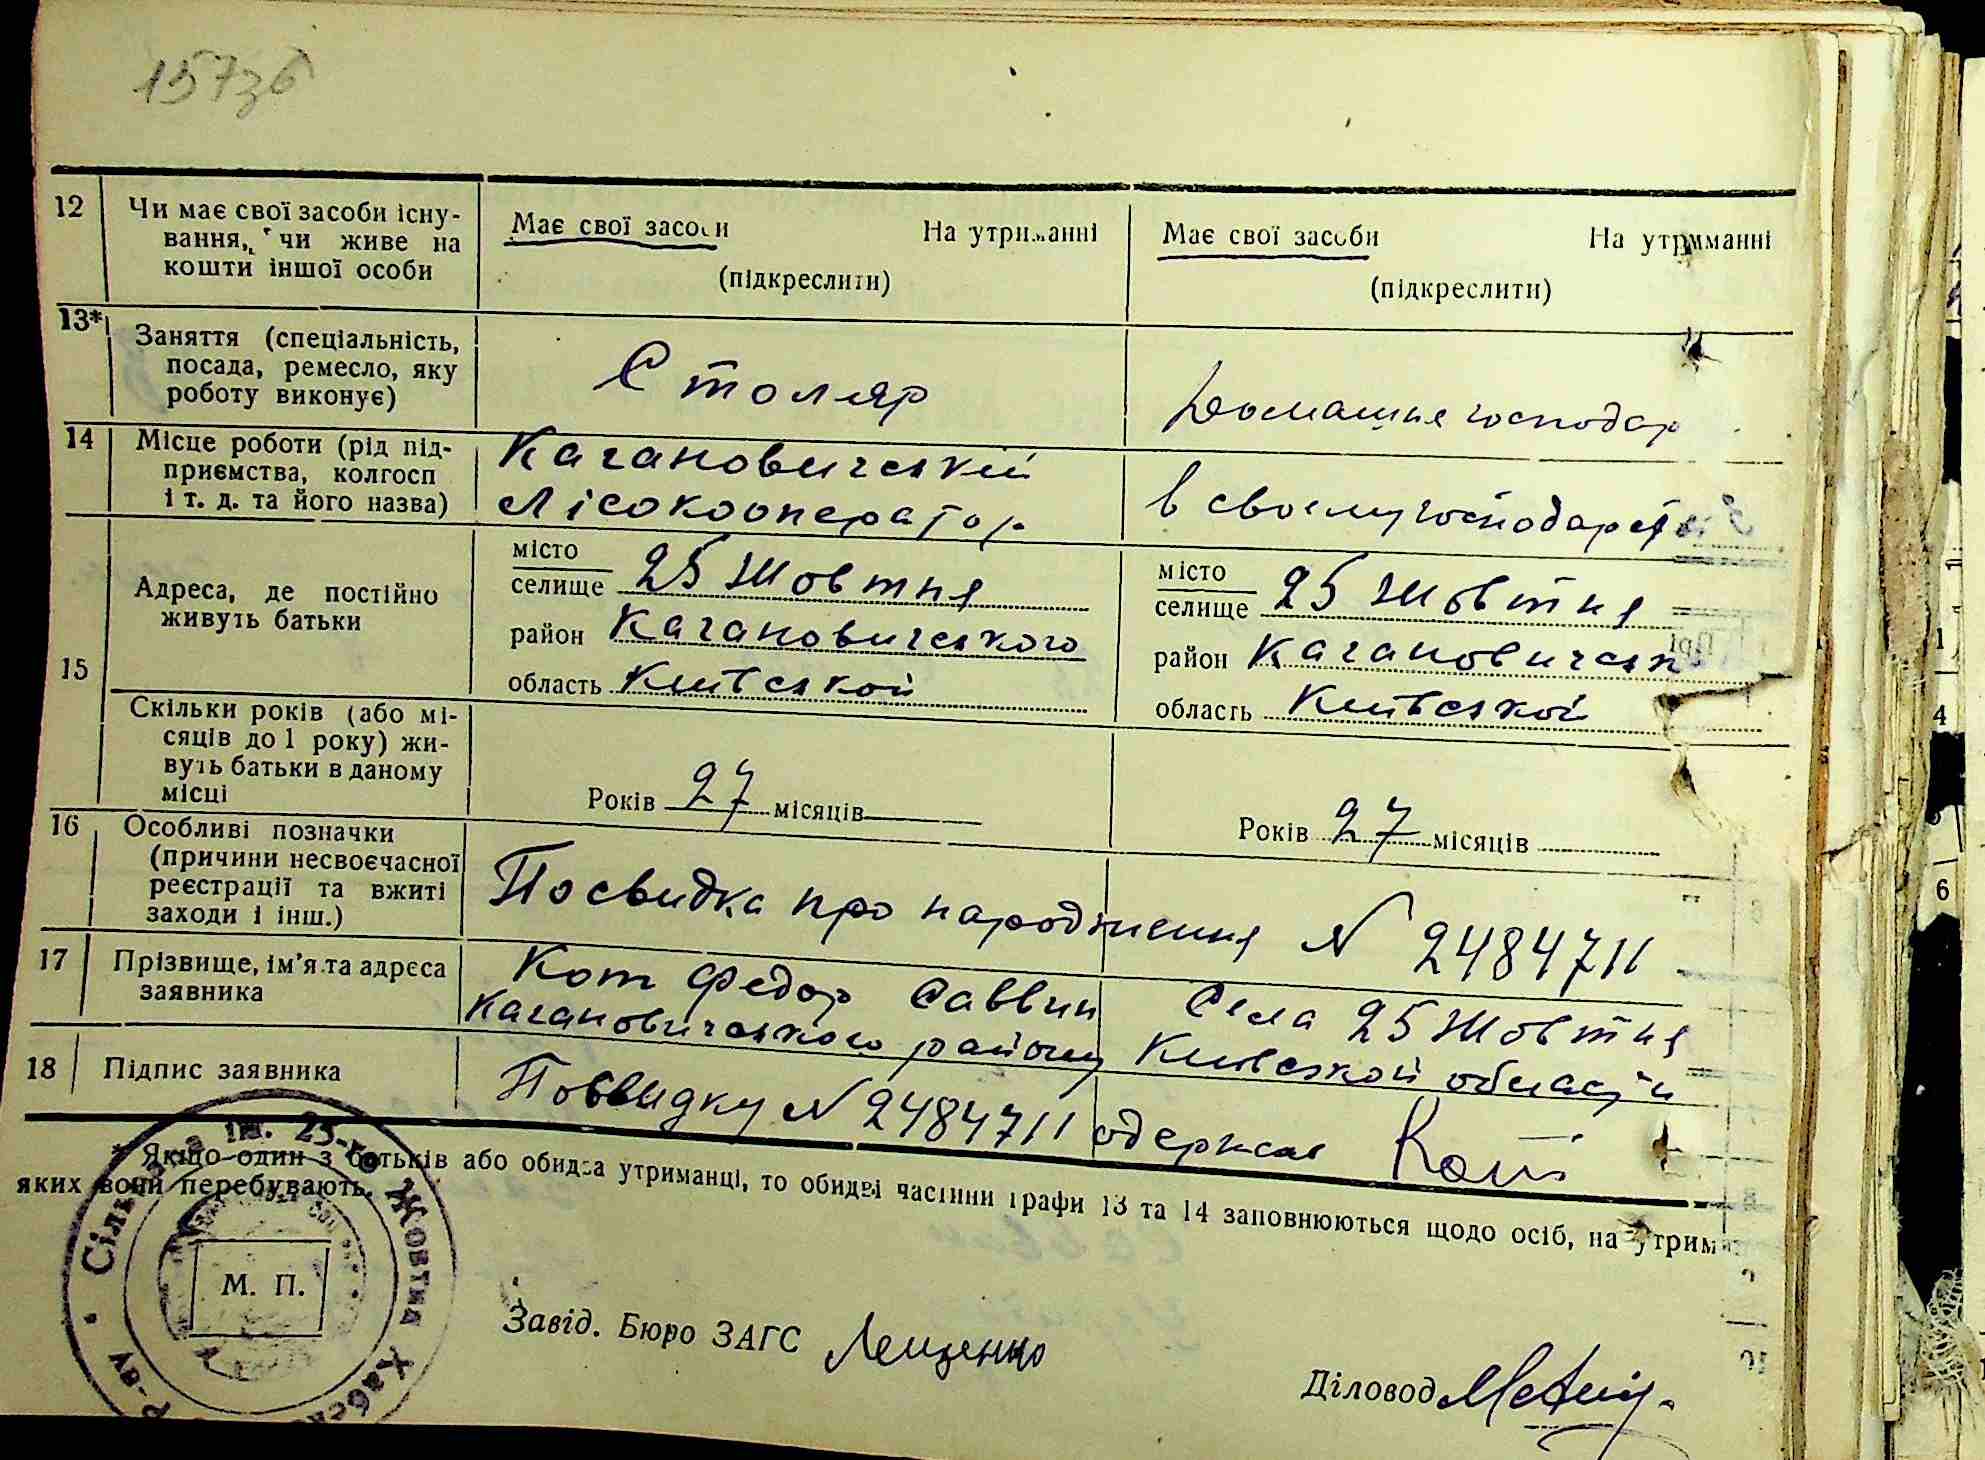 157зб
12 Чи має свої засоби існу-
вання, чи живе на
кошти іншої особи
Має свої засоби На утриманні
(підкреслити)
Має свої засоби На утриманні
(підкреслити)
13* Заняття (спеціальність,
посада, ремесло, яку
роботу виконує)
Столяр
Домашне господар
14 Місце роботи (рід під-
приємства, колгосп
і т. д. та його назва)
Кагановичський
Лісокооператор
в своєму господарстві
15 Адреса, де постійно
живуть батьки
місто
селище 25 Жовтня
район Кагановичського
область Київської
місто
селище 25 Жовтня
район Кагановичськ
область Київської
Скільки років (або мі-
сяців до 1 року) жи-
вуть батьки в даному
місці
Років 27 місяців
Років 27 місяців
16 Особливі позначки
(причини несвоєчасної
реєстрації та вжиті
заходи і інш.)
Посвидка про народження N 2484711
17 Прізвище, ім'я та адреса
заявника
Кот Федор Саввин Села 25 Жовтня
Кагановичського району Київской області
18 Підпис заявника
Посвидку N 2484711 одержав Кот
* Якщо один з батьків або обидва утриманці, то обидві частини графи 13 та 14 заповнюються щодо осіб, на утрим
яких вони перебувають.
Сільрада ім. 25-го Жовтня Хабен
Р-ву
М. П.
Завід. Бюро ЗАГС Лещенко
Діловод